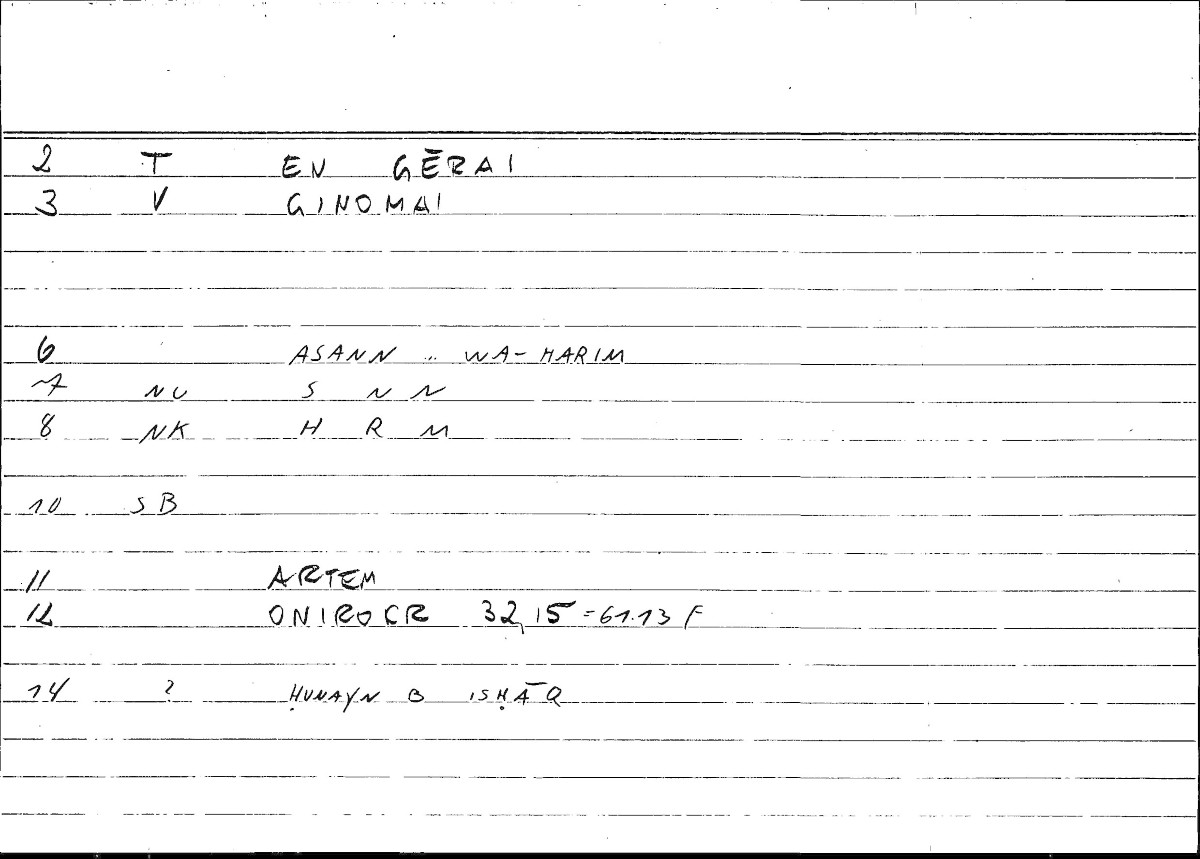 2 T EN GĒRAI
3 V GINOMAI
6 ASANN .. WA-HARIM
7 NU S N N
8 NK H R M
10 SB
11 ARTEM
12 ONIROCR 32,15=61.13 F
14 ? ḤUNAYN B ISḤĀQ